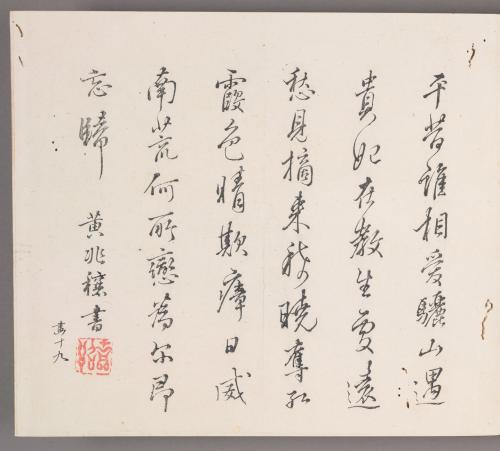 平昔誰相愛驪山遇
貴妃在教生處遠
愁見摘來稀曉奪紅
霞色晴欺瘴日威
南荒何所戀為尔即
忘歸 黃兆穰書
十九